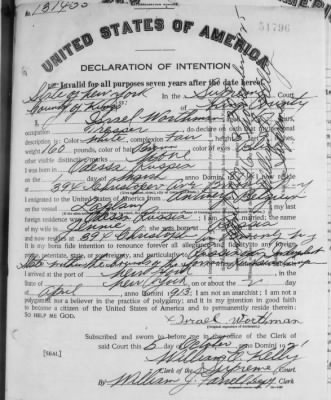 No. 131400
51796
UNITED STATES OF AMERICA
DECLARATION OF INTENTION
Invalid for all purposes seven years after the date hereof
State of New York
In the Supreme Court
County of Kings ss: of Kings County
I, Israel Worthman
occupation Presser, do declare on oath that my personal
description is: Color White, complexion Fair, height
weight 160 pounds, color of hair Brown, color of eyes
other visible distinctive marks None
I was born in Odessa Russia
on the 1 day of March, anno Domini
at 394 Christopher Ave Brooklyn, N.Y.
I emigrated to the United States of America from Antwerp Belgium
on the vessel; my last
foreign residence was Odessa Russia; I am married; the name
of my wife is Jennie; she was born
and now resides at 394 Christopher Ave Brooklyn N.Y.
It is my bona fide intention to renounce forever all allegiance and fidelity to any foreign
prince, potentate, state, or sovereignty, and particularly to
I arrived at the port of New York, in the
State of New York, on or about the day
of April, anno Domini 1913: I am not an anarchist; I am not a
polygamist nor a believer in the practice of polygamy; and it is my intention in good faith
to become a citizen of the United States of America and to permanently reside therein:
SO HELP ME GOD.
Israel Worthman
(Original signature of declarant)
Subscribed and sworn to before me in the office of the Clerk of
[SEAL] said Court this 5 day of October, anno Domini 1921
William E. Kelly
Clerk of the Supreme Court.
By William J. Clerk